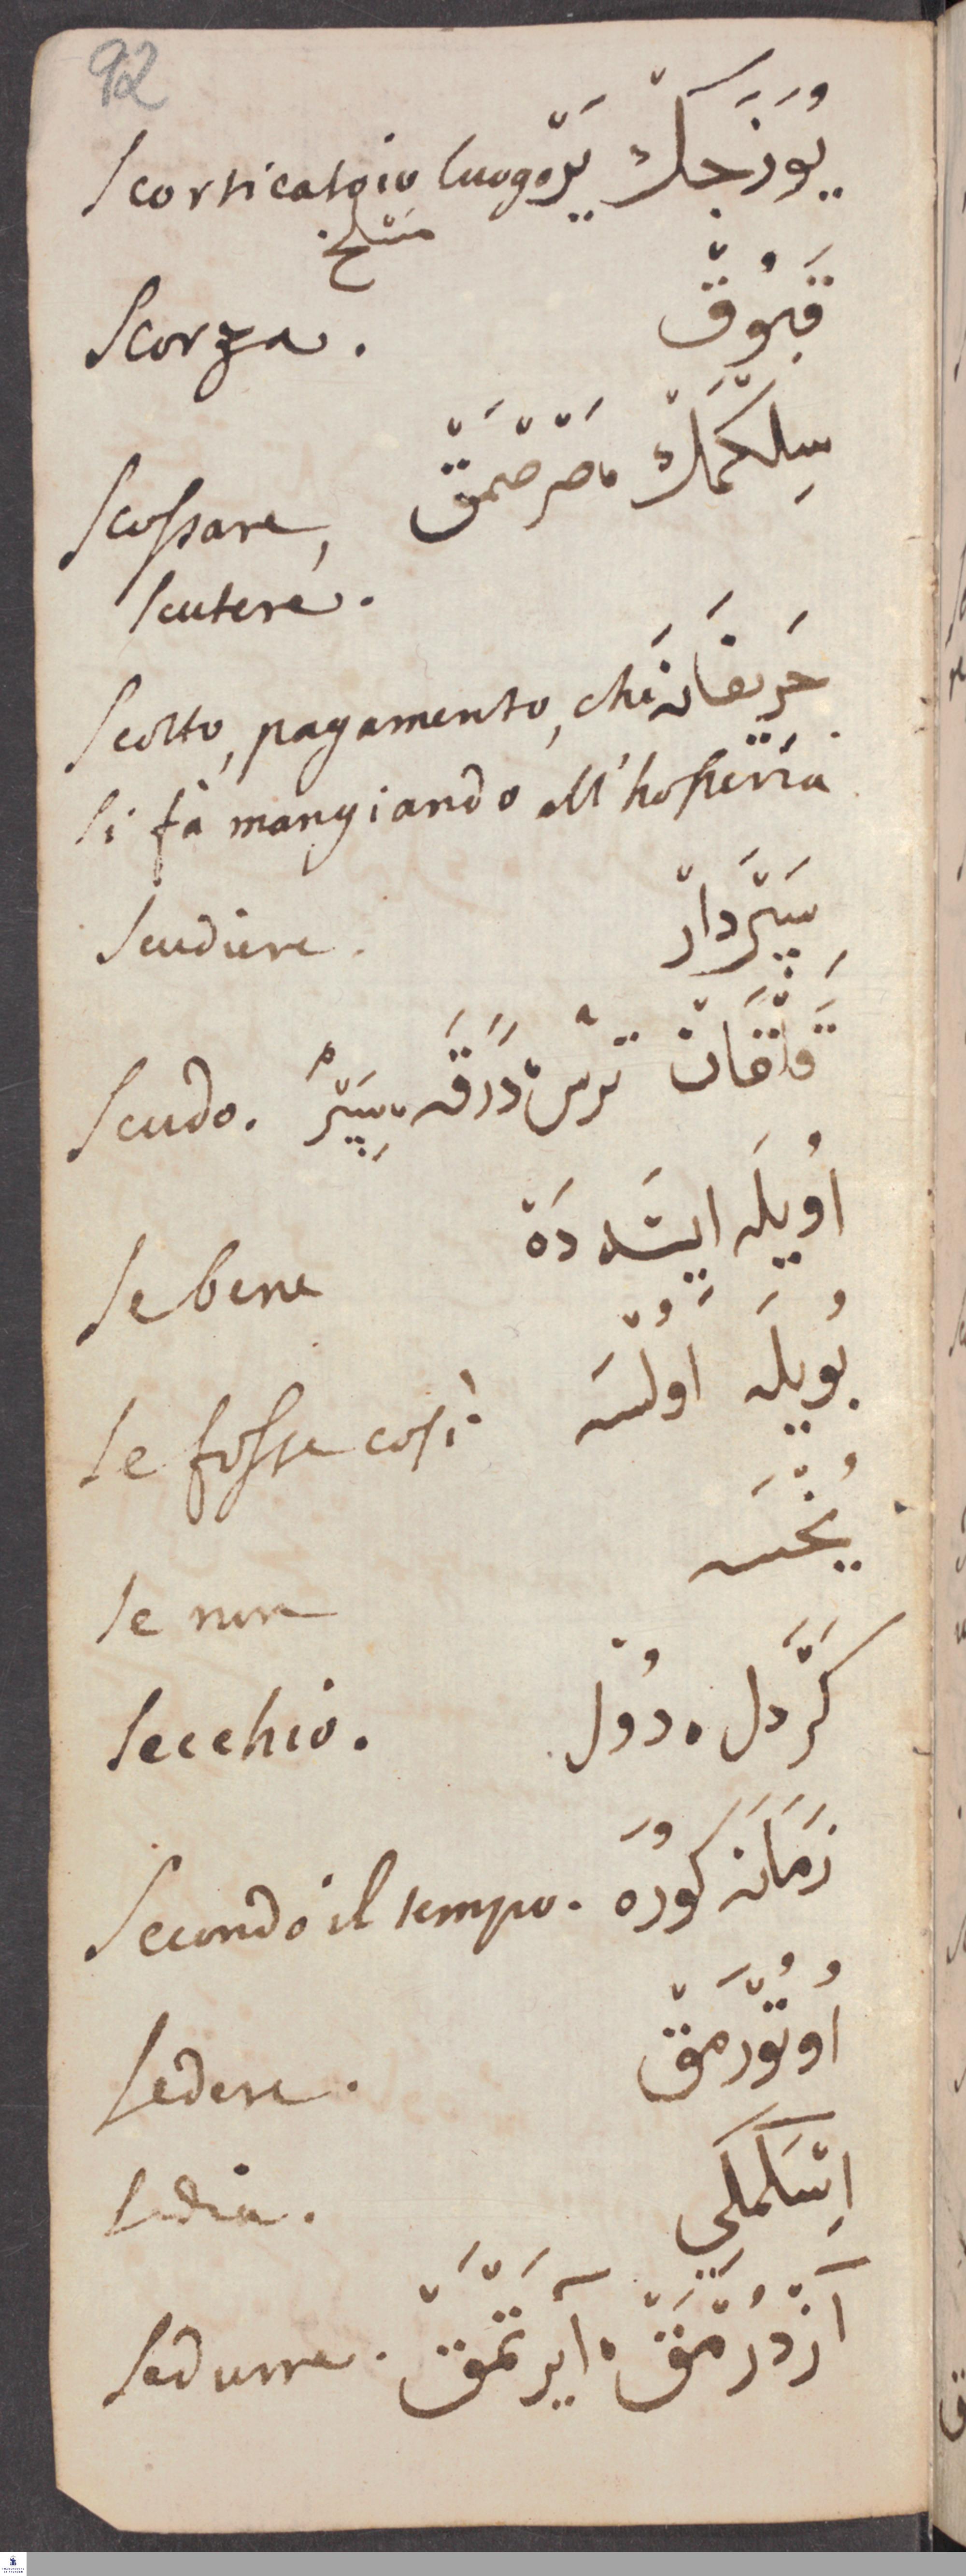 92
Scorticatoio luogo يُوزَجَكْ يَرْ
مسلخ
Scorza. قَبُوقْ
Scossare, سِلْكْمَكْ صَرْصْمَقْ
scutere.
Scotto, pagamento, che حَرِيفَانَه
si fà mangiando all'hosteria
Scudiere. سِپَرْدَارْ
Scudo. قَلْقَانْ تُرْسْ دَرَقَه سِپَرْ
Se bene اُويلَه ايسَه دَهْ
Se fosse cosi بُويلَه اُولْسَه
Se non يُخْسَه
Secchio. كَرْدَل دُول
Secondo il tempo. زَمَانَه كُورَه
Sedere. اُوتُورْمَقْ
Sedia. اِسْكَمْلِي
Sedurre. آزْدُرْمَقْ آيَرْتْمَقْ